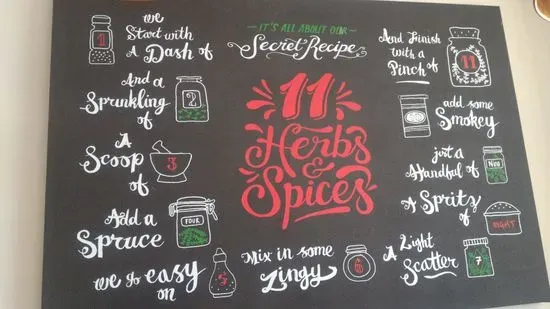 IT'S ALL ABOUT OUR
Secret Recipe
11
Herbs
&
Spices
We
Start with
A Dash of
1
And a
Sprunkling
of
2
A
Scoop
of
3
Add a
Spruce
FOUR
we go easy
on
5
Mix in some
Zingy
6
A Light
Scatter
7
A Spritz
of
EIGHT
just a
Handful of
add some
Smokey
And Finish
with a
Pinch of
11